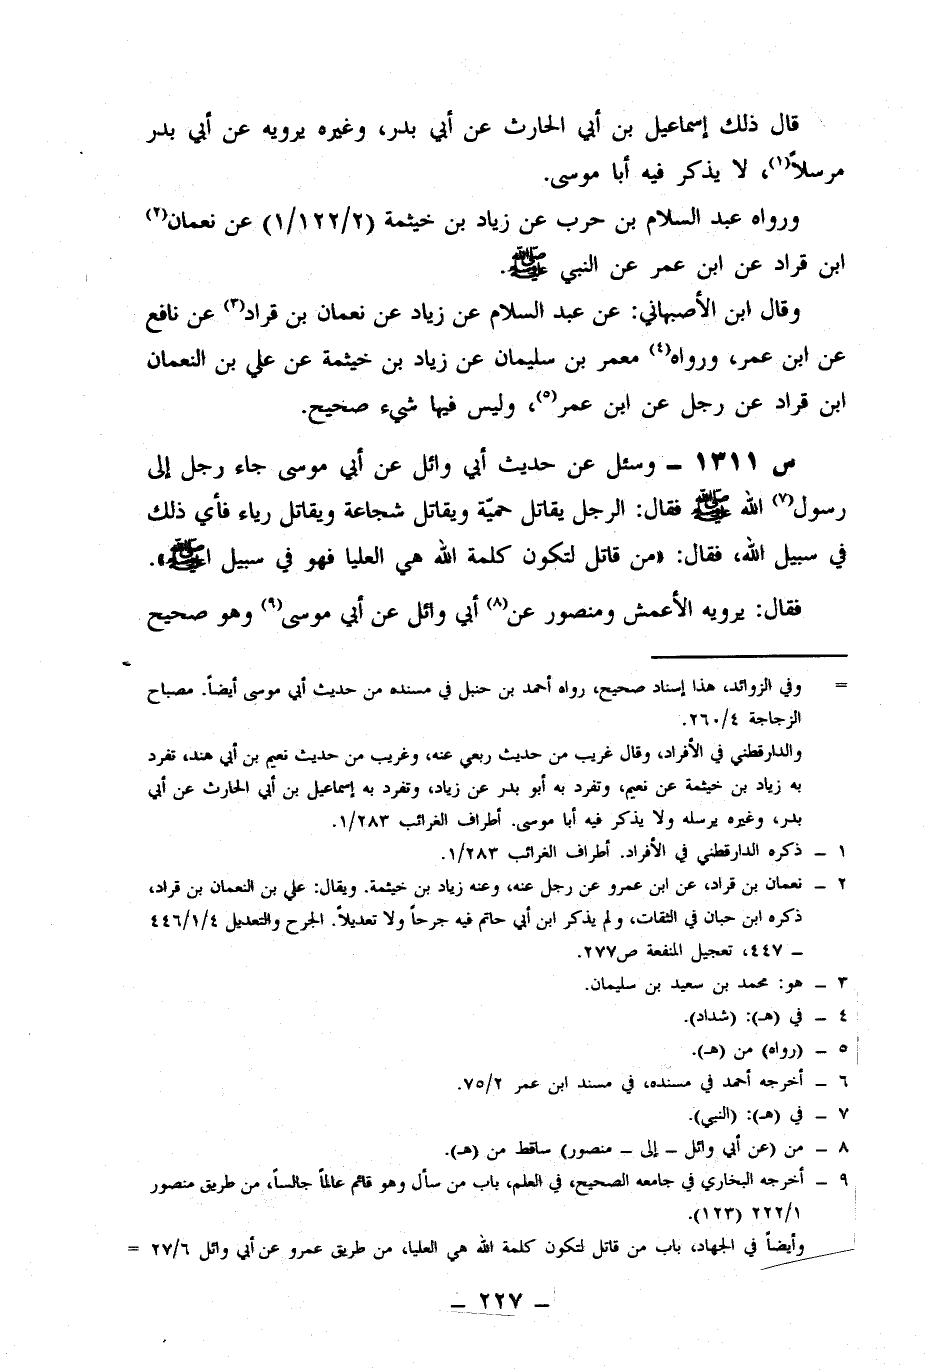 قال ذلك إسماعيل بن أبي الحارث عن أبي بدر، وغيره يرويه عن أبي بدر
مرسلاً(١)، لا يذكر فيه أبا موسى.
ورواه عبد السلام بن حرب عن زياد بن خيثمة (١/١٢٢/٢) عن نعمان(٢)
ابن قراد عن ابن عمر عن النبي ﷺ.
وقال ابن الأصبهاني: عن عبد السلام عن زياد عن نعمان بن قراد(٣) عن نافع
عن ابن عمر، ورواه(٤) معمر بن سليمان عن زياد بن خيثمة عن علي بن النعمان
ابن قراد عن رجل عن ابن عمر(٥)، وليس فيها شيء صحيح.
س ١٣١١ – وسئل عن حديث أبي وائل عن أبي موسى جاء رجل إلى
رسول(٧) الله ﷺ فقال: الرجل يقاتل حميّة ويقاتل شجاعة ويقاتل رياء فأي ذلك
في سبيل الله، فقال: «من قاتل لتكون كلمة الله هي العليا فهو في سبيل ا ﷺ».
فقال: يرويه الأعمش ومنصور عن(٨) أبي وائل عن أبي موسى(٩) وهو صحيح
= وفي الزوائد، هذا إسناد صحيح، رواه أحمد بن حنبل في مسنده من حديث أبي موسى أيضاً. مصباح
الزجاجة ٢٦٠/٤.
والدارقطني في الأفراد، وقال غريب من حديث ربعي عنه، وغريب من حديث نعيم بن أبي هند، تفرد
به زياد بن خيثمة عن نعيم، وتفرد به أبو بدر عن زياد، وتفرد به إسماعيل بن أبي الحارث عن أبي
بدر، وغيره يرسله ولا يذكر فيه أبا موسى. أطراف الغرائب ١/٢٨٣.
١ – ذكره الدارقطني في الأفراد. أطراف الغرائب ١/٢٨٣.
٢ – نعمان بن قراد، عن ابن عمرو عن رجل عنه، وعنه زياد بن خيثمة. ويقال: علي بن النعمان بن قراد،
ذكره ابن حبان في الثقات، ولم يذكر ابن أبي حاتم فيه جرحاً ولا تعديلاً. الجرح والتعديل ٤٤٦/١/٤
– ٤٤٧، تعجيل المنفعة ص٢٧٧.
٣ – هو: محمد بن سعيد بن سليمان.
٤ – في (هـ): (شداد).
٥ – (رواه) من (هـ).
٦ – أخرجه أحمد في مسنده، في مسند ابن عمر ٧٥/٢.
٧ – في (هـ): (النبي).
٨ – من (عن أبي وائل – إلى – منصور) ساقط من (هـ).
٩ – أخرجه البخاري في جامعه الصحيح، في العلم، باب من سأل وهو قائم عالماً جالساً، من طريق منصور
٢٢٢/١ (١٢٣).
وأيضاً في الجهاد، باب من قاتل لتكون كلمة الله هي العليا، من طريق عمرو عن أبي وائل ٢٧/٦ =
– ٢٢٧ –